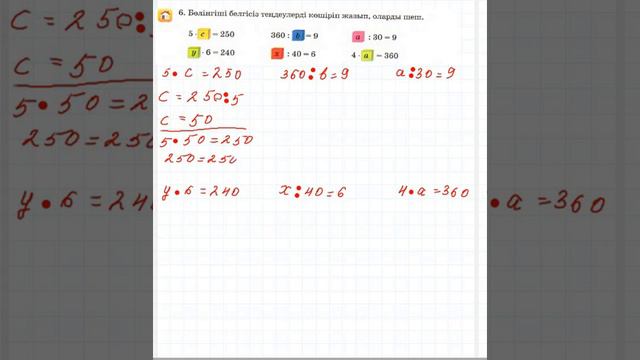 6. Бөлінгіші белгісіз теңдеулерді көшіріп жазып, оларды шеш.
5 · c = 250 360 : b = 9 a : 30 = 9
y · 6 = 240 x : 40 = 6 4 · a = 360
5 • c = 250 360 : b = 9 a : 30 = 9
c = 250 : 5
c = 50
5 • 50 = 250
250 = 250
y • 6 = 240 x : 40 = 6 4 • a = 360